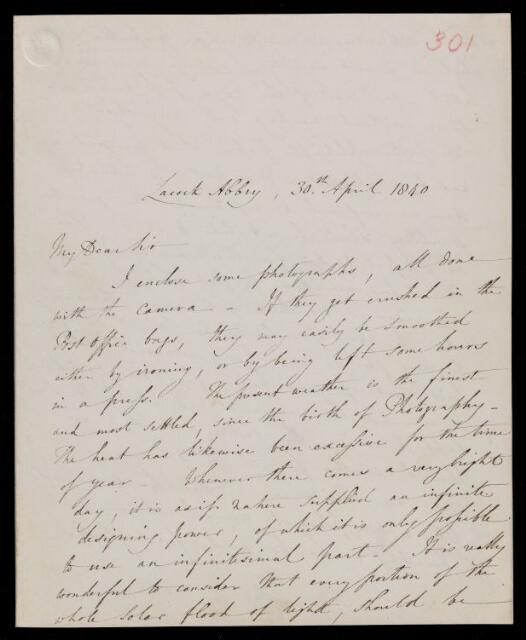 301
Lacock Abbey, 30.th April 1840
My Dear Sir
I enclose some photographs, all done
with the camera - If they get crushed in the
Post office bags, they may easily be smoothed
either by ironing, or by being left some hours
in a press. The present weather is the finest
and most settled, since the birth of Photography -
The heat has likewise been excessive for the time
of year Whenever there comes a very bright
day, it is as if nature supplied an infinite
designing power, of which it is only possible
to use an infinitesimal part - It is really
wonderful to consider that every portion of the
whole solar flood of light, should be